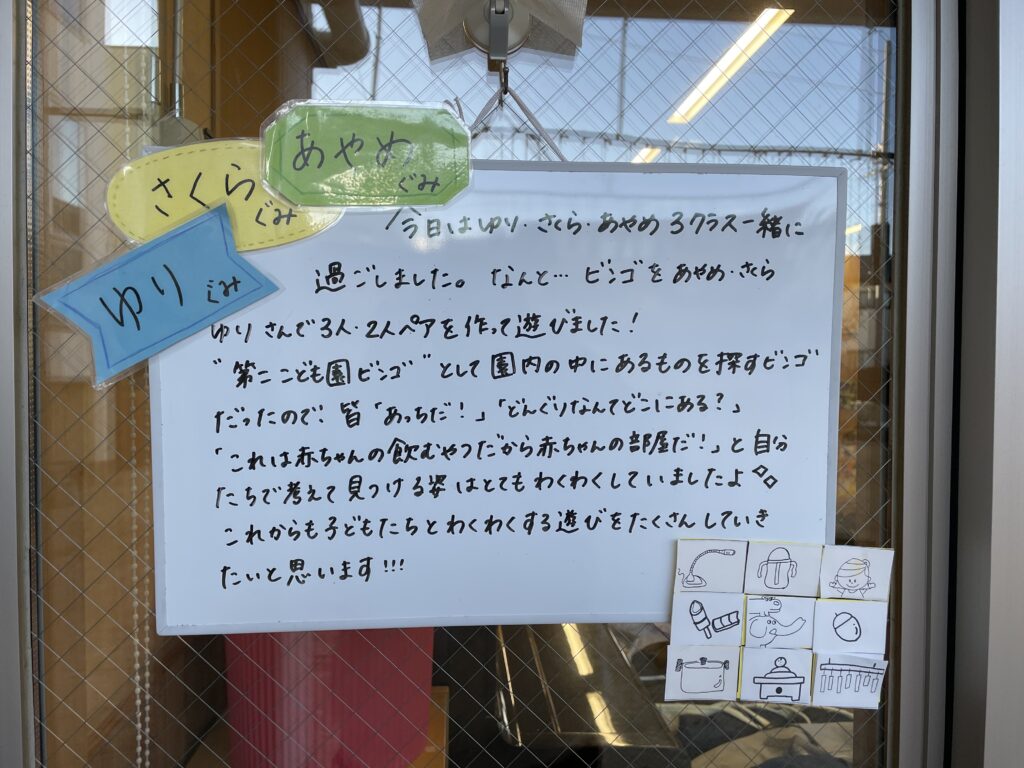 あやめ
ぐみ
さくら
ぐみ
ゆり ぐみ
今日はゆり・さくら・あやめ 3クラス一緒に
過ごしました。なんと… ビンゴをあやめ・さくら
ゆりさんで3人・2人ペアを作って遊びました!
"第二こども園ビンゴ"として園内の中にあるものを探すビンゴ
だったので、皆「あっちだ!」「どんぐりなんてどこにある?」
「これは赤ちゃんの飲むやつだから赤ちゃんの部屋だ!」と自分
たちで考えて見つける姿はとてもわくわくしていましたよ◇◇
これからも子どもたちとわくわくする遊びをたくさんしていき
たいと思います!!!